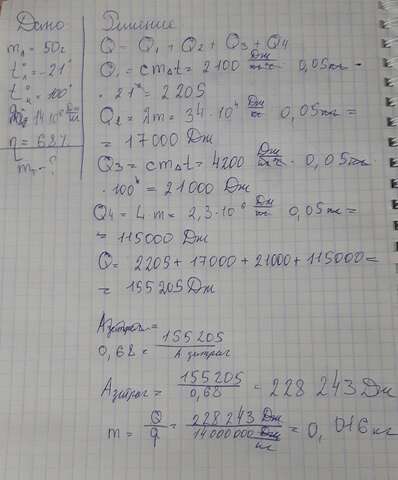 Дано
mл = 50г
tл° = -21°
tк° = 100°
q = 14·10⁶ Дж/кг
η = 68%
mт - ?
Решение
Q = Q1 + Q2 + Q3 + Q4
Q1 = cm△t = 2100 Дж/кг°С · 0,05кг ·
· 21° = 2205
Q2 = λm = 34·10⁴ Дж/кг 0,05кг =
= 17000 Дж
Q3 = cm△t = 4200 Дж/кг°С · 0,05кг
· 100° = 21000 Дж
Q4 = Lm = 2,3·10⁶ Дж/кг 0,05кг =
= 115000 Дж
Q = 2205 + 17000 + 21000 + 115000 =
= 155205 Дж
Aзатрач =
0,68 = 155205 / Aзатрач
Aзатрач = 155205 / 0,68 = 228 243 Дж
m = Q/q = 228 243 Дж / 14000000 Дж/кг = 0,016 кг